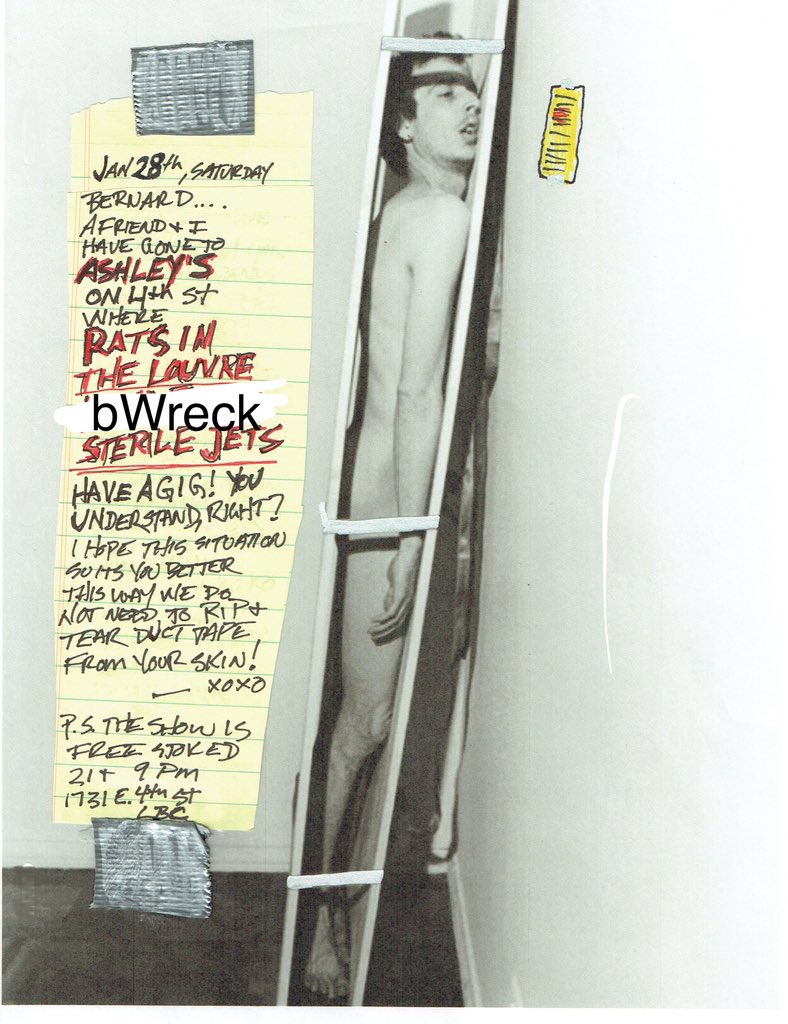 JAN 28th, SATURDAY
BERNARD....
A FRIEND & I
HAVE GONE TO
ASHLEY'S
ON 4th ST
WHERE
RATS IN
THE LOUVRE
bWreck
STERILE JETS
HAVE A GIG! YOU
UNDERSTAND, RIGHT?
I HOPE THIS SITUATION
SUITS YOU BETTER
THIS WAY WE DO
NOT NEED TO RIP &
TEAR DUCT TAPE
FROM YOUR SKIN!
— XOXO
P.S. THE SHOW IS
FREE
21+ 9 PM
1731 E. 4th ST
LBC